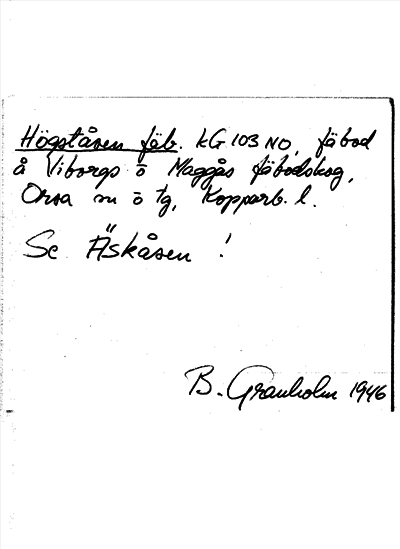 Högståsen fäb. kG 103 NO, fäbod
å Viborgs o Maggås fäbodskog,
Orsa sn o tg, Kopparb. l.
Se Äskåsen !
B. Granholm 1946